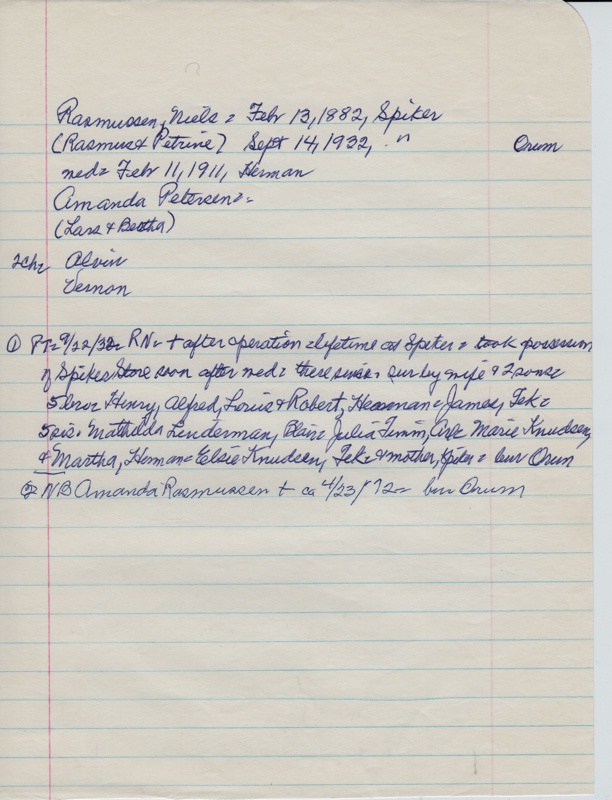 Rasmussen, Niels = Febr 13, 1882, Spiker
(Rasmus & Petrine) Sept 14, 1932, " Orum
med= Febr 11, 1911, Herman
Amanda Petersen=
(Lars & Bertha)
2ch= Alvin
Vernon
① PT= 9/22/32= RN= + after operation = lifetime at Spiker = took possession
of Spiker Store soon after med= there since= sur by wife & 2 sons=
5 bros= Henry, Alfred, Louis & Robert, Herman= James, Tek=
5 sis= Mathilda Linderman, Blair= Julia Timm, Marie Knudsen,
& Martha, Herman= Elsie Knudsen, Tek= & mother, Spiker= bur Orum
② NB Amanda Rasmussen + ca 4/23/72= bur Orum